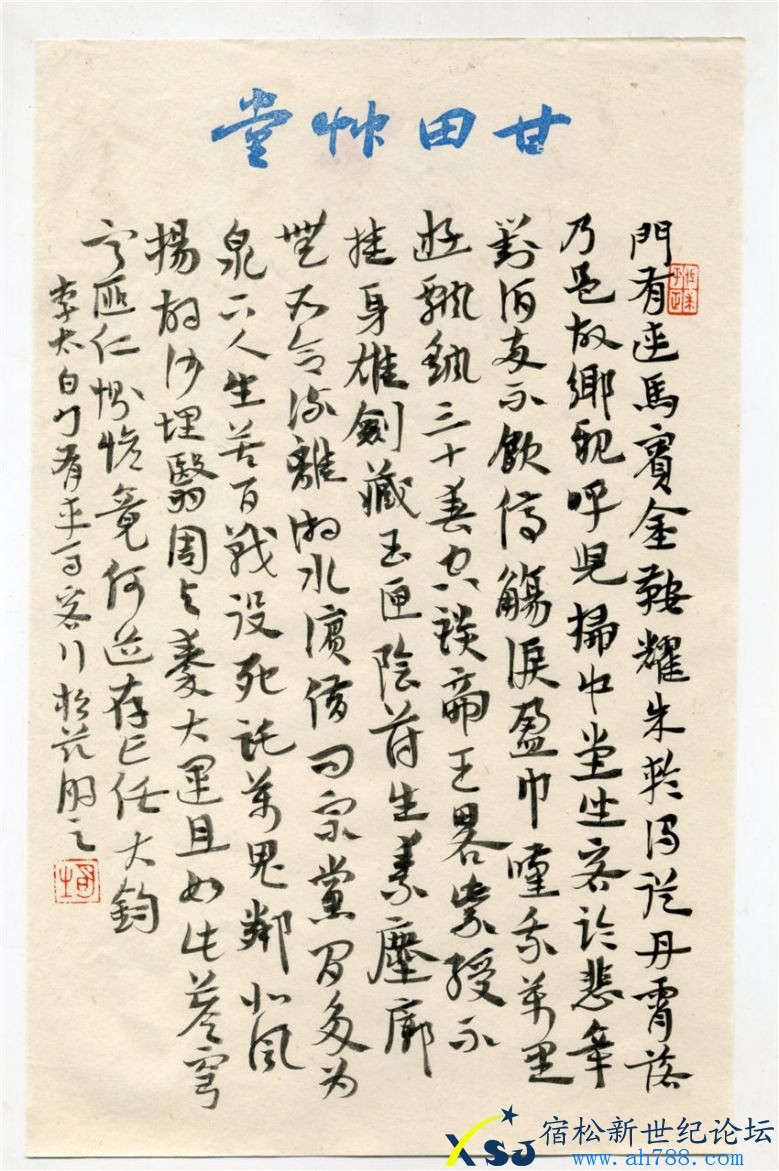 甘田艸堂
門有車馬賓金鞍耀朱輪謂從丹霄落
乃是故鄉親呼兒掃中堂坐客論悲辛
對酒兩不飲停觴淚盈巾嘆我萬里
遊飄飄三十春空談帝王略紫綬不
挂身雄劍藏玉匣陰符生素塵廓
無所合流離湘水濱借問宗黨間多为
泉下人生苦百戰役死託萬鬼鄰北風
揚胡沙埋翳周与秦大運且如此蒼穹
寧匪仁惻愴竟何道存亡任大鈞
李太白门有車马客行
宿松新世纪论坛
XSJ www.ah788.com